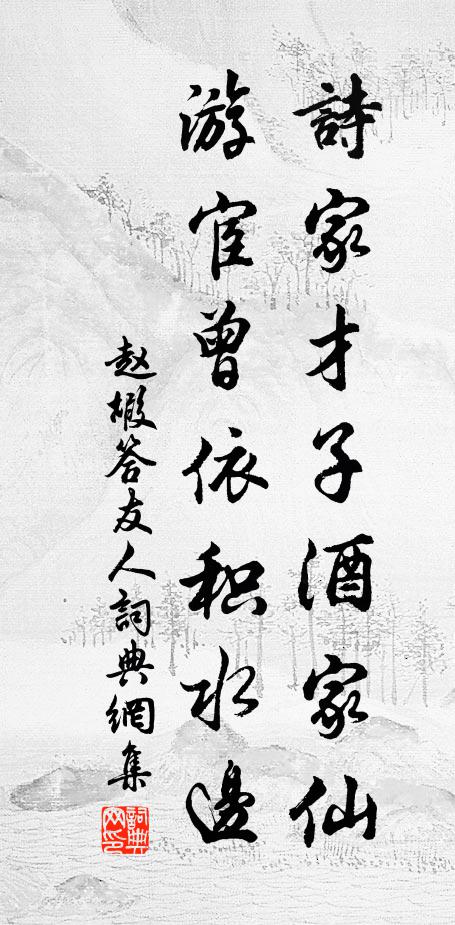 詩家才子酒家仙
游宦曾依积水邊
赵嘏答友人詞典網集
詞典
网印